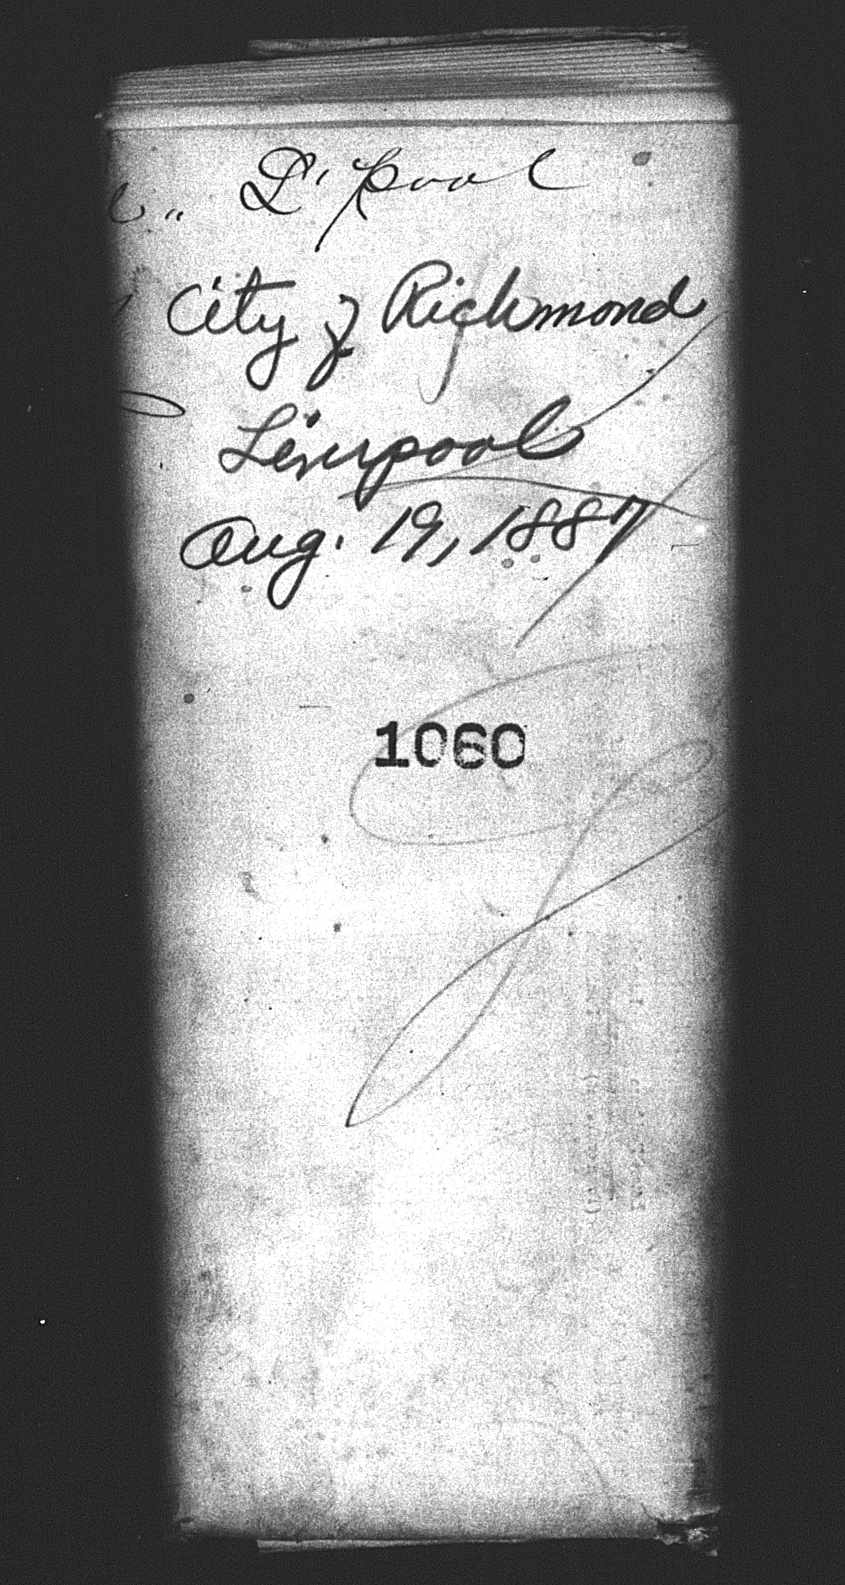 L'pool
City of Richmond
Liverpool
Aug. 19, 1887
1060